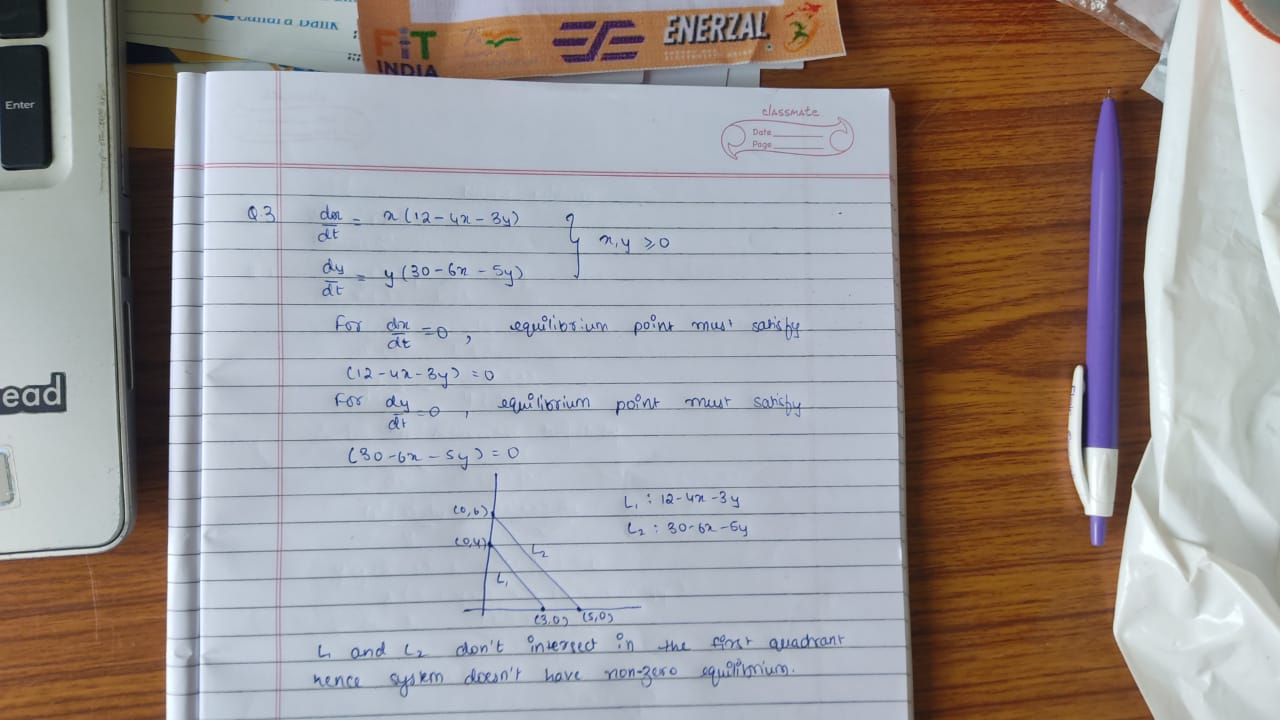 Canara Bank
FiT
INDIA
75
ENERZAL
Enter
ead
classmate
Date
Page
Q.3 dx/dt = x(12-4x-3y)
x,y ≥0
dy/dt = y(30-6x-5y)
For dx/dt =0, equilibrium point must satisfy
(12-4x-3y)=0
For dy/dt =0, equilibrium point must satisfy
(30-6x-5y)=0
L₁ : 12-4x-3y
(0,6)
L₂ : 30-6x-5y
(0,4)
L₂
L₁
(3,0) (5,0)
L₁ and L₂ don't intersect in the first quadrant
hence system doesn't have non-zero equilibrium.